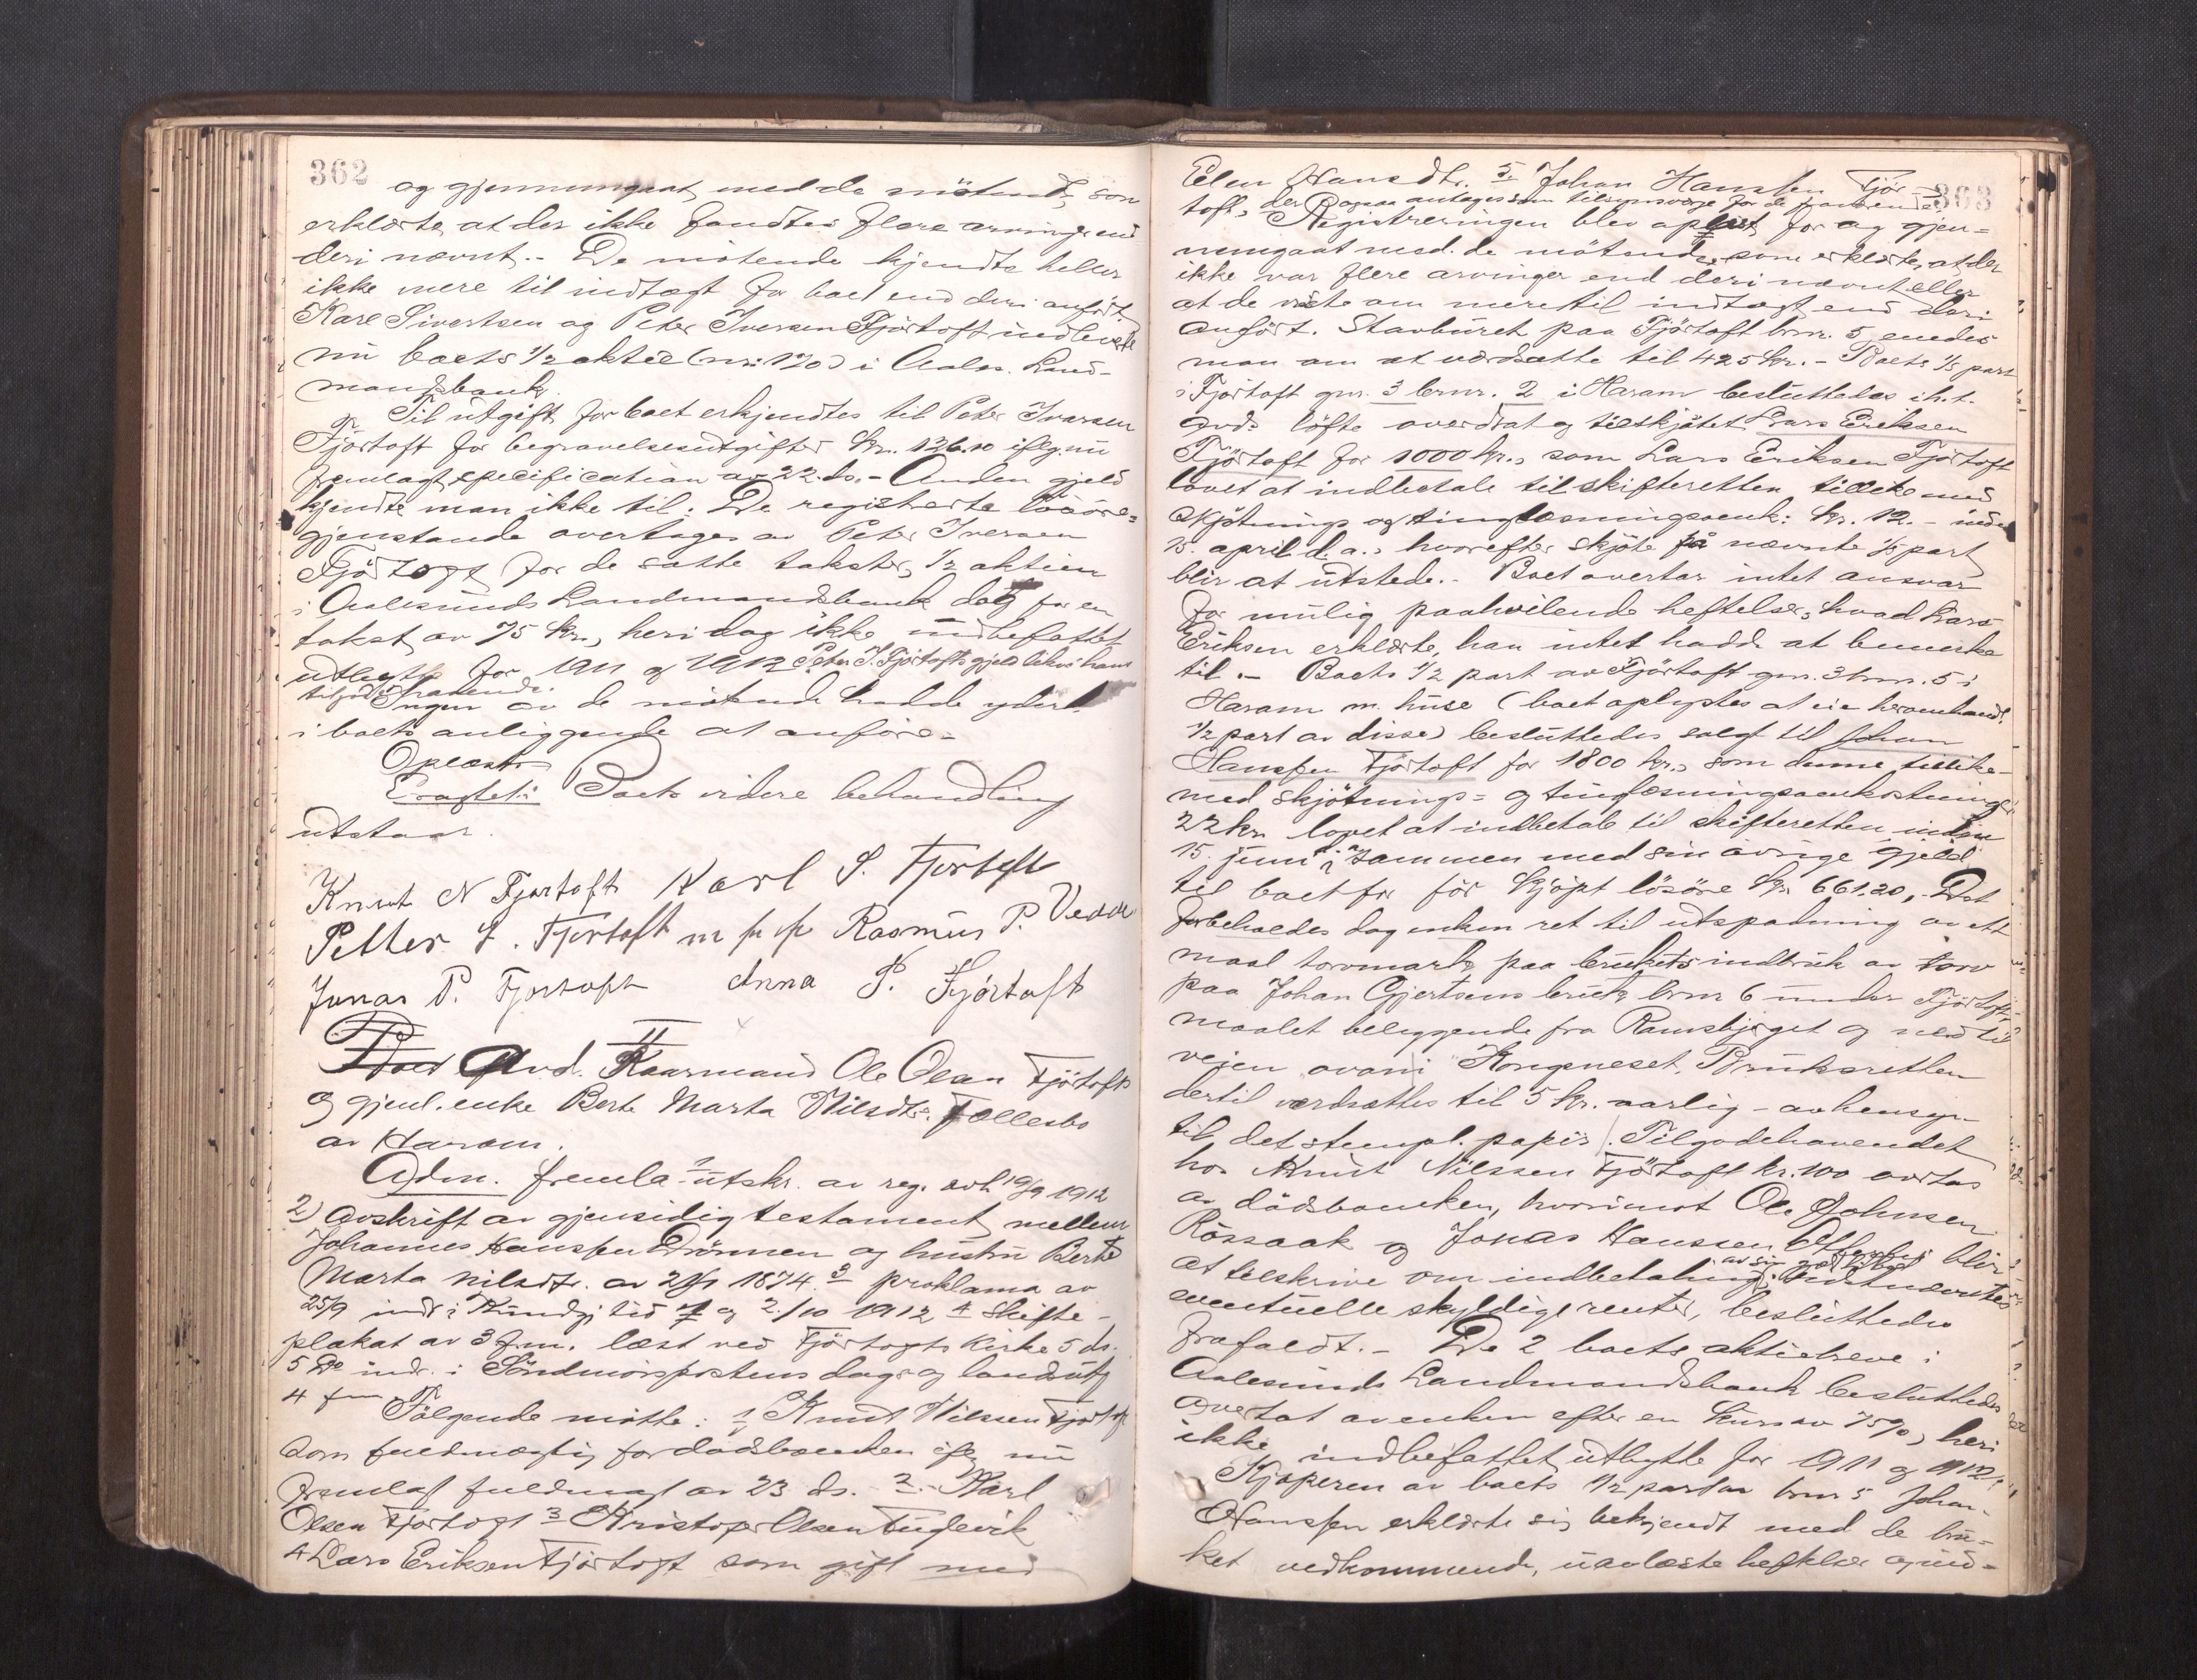 362
og gjennemgaat med de mötende, som
erklærte, at der ikke fandtes flere arvinger end
deri nævnt. - De mötende kjendte heller
ikke mere til indtægt for boet end deri anfört
Karl Sivertsen og Peter Iversen Fjörtoft indleverte
nu boets 1/2 aktie (nr: 170) i Aales. Land-
mandsbank.
Til utgift for boet erkjendtes til Peter Ivarsen
Fjörtoft for begravelsesutgifter kr. 136.10 iflg. nu
fremlagt specification av 22. ds. - Anden gjeld
kjendte man ikke til. De registrerte lösöre-
gjenstande overtages av Peter Iversen
Fjörtoft for de satte takster, 1/2 aktien
i Aalesunds Landmandsbank dog for en
takst av 75 kr., heri dog ikke indbefattet
utbytte for 1911 og 1912. Peter I. Fjörtofts gjeld likesaa hans
tilgodehavende.
Ingen av de mötende hadde yderl.
i boets anliggende at anföre. -
Oplæst
Eragtet: Boets videre behandling
utstaar.
Knut N Fjørtoft Karl S. Fjørtoft
Petter I. Fjørtoft m p p Rasmus P.
Jonas P. Fjortoft Anna P. Fjörtoft
II
Avd. Kaarmand Ole Olsen Fjörtoft
og gjenl. enke Berte Marta Nilsdtr. fællesbo
av Haram.
Adm. fremla 1 utskr. av reg. avh 19/9 1912
2) avskrift av gjensidig testament mellem
Johannes Hanssen Drönnen og hustru Berte
Marta Nilsdtr. av 1874. 3 proklama av
25/9 indr. i Kundgj. tid og 2/10 1912 4 Skifte-
plakat av 3 f.m. læst ved Fjörtofts kirke 5 ds.
5 do indr. i Söndmörspostens dags og landsutg
4 fm
Fölgende mötte: 1 Knut Nilssen Fjörtoft
som fuldmægtig for dödsboenken iflg nu
fremlagt fuldmagt av 23 ds. 2. Karl
Olsen Fjörtoft 3 Kristoffer Olsen Fuglevik
4 Lars Eriksen Fjörtoft som gift med
363
Elen Hansdtr. 5. Johan Hanssen Fjör-
toft, der ogsaa antages som tilsynsverge for de fraværende.
Registreringen blev oplæst for og gjen-
nemgaat med de mötende, som erklærte, at der
ikke var flere arvinger end deri nævnt eller
at de visste om mere til indtægt end deri
anfört. Stavburet paa Fjörtoft brnr. 5 enedes
man om at værdsætte til 425 kr. - Boets 1/5 part
i Fjörtoft gnr. 3 brnr. 2 i Haram besluttedes i h. t.
avds löfte overdrat og tilskjötet Lars Eriksen
Fjörtoft for 1000 kr., som Lars Eriksen Fjörtoft
lovet at indbetale til skifteretten tillike med
skjötnings og tinglæsningsomk: kr. 12. - inden
15. april d. a., hvorefter skjöte på nævnte 1/5 part
blir at utstede. - Boet overtar intet ansvar
for mulig paahvilende heftelser, hvad Lars
Eriksen erklærte, han intet hadde at bemerke
til. - Boets 1/2 part av Fjörtoft gnr. 3 brnr. 5 i
Haram m. huse (boet oplystes at eie heromhandl.
1/2 part av disse) besluttedes solgt til Johan
Hanssen Fjörtoft for 1800 kr., som denne tillike-
med skjötnings- og tinglæsningsomkostninger
22 kr. lovet at indbetale til skifteretten inden
15. juni sammen med sin övrige gjeld
til boet for för kjöpt lösöre kr 661.20,. Det
forbeholdes dog enken ret til utspadning av ett
maal torvmark paa brukets indbruk av torv
paa Johan Gjertsens bruk brnr 6 under Fjörtoft,
maalet beliggende fra Ramsbjerget og ned til
veien ovani Kongsneset. Bruksretten
dertil værdsættes til 5 kr. aarlig - av hensyn
til det stempl. papir. Tilgodehavendet
hos Knut Nilssen Fjörtoft kr. 100 overtas
av dödsboenken, hvorimot Ole Johnsen
Rössaak og Jonas Hanssen blir
at tilskrive om indbetaling av sin gjeld. Sidstnævntes
eventuelle skyldige renter, besluttedes
frafaldt. - De 2 boets aktiebreve i
Aalesunds Landmandsbank besluttedes
overtat av enken efter en kurs av 75%, heri
ikke indbefattet utbytte for 1911 og 1912.
Kjöperen av boets 1/2 part av brnr 5 Johan
Hanssen erklærte sig bekjendt med de bru-
ket vedkommende, uavlæste heftelser og ind-